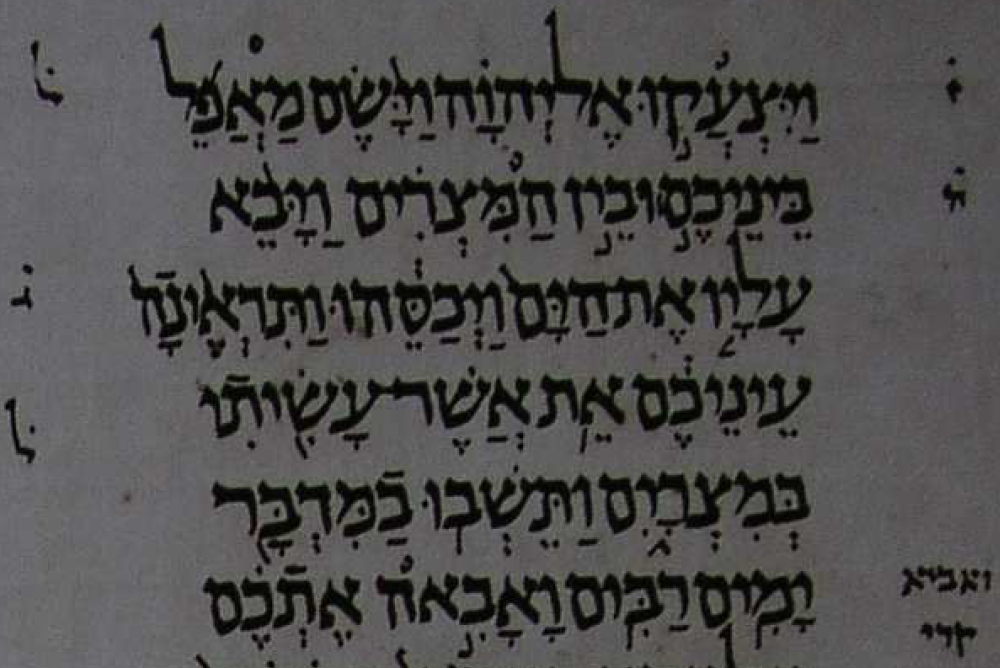 וַיִּצְעֲקוּ אֶל יְהוָה וַיָּשֶׂם מַאֲפֵל ל̇
בֵּינֵיכֶם וּבֵין הַמִּצְרִים וַיָּבֵא
עָלָיו אֶת הַיָּם וַיְכַסֵּהוּ וַתִּרְאֶינָה ג̇
עֵינֵיכֶם אֵת אֲשֶׁר עָשִׂיתִי ל̇
בְּמִצְרָיִם וַתֵּשְׁבוּ בַמִּדְבָּר
ואביא יָמִים רַבִּים וָאָבִאה אֶתְכֶם
קרי